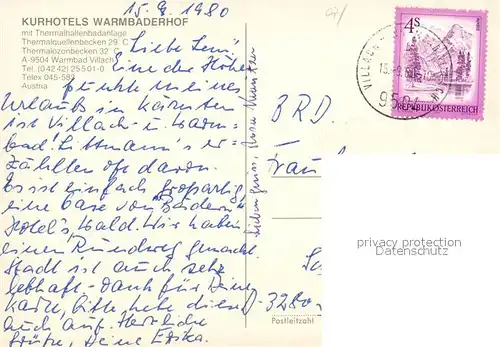 15.9.1980
KURHOTELS WARMBADERHOF
mit Thermalhallenbadanlage
Thermalquellenbecken 29 C
Thermalozonbecken 32 C
A-9504 Warmbad Villach
Tel. (0 42 42) 255 01-0
Telex 045-583
Austria
Liebe Leni!
Eine der Höhe-
punkte meines
Urlaubs in Kärnten
ist Villach u. Warm-
bad! Littmann's er-
zählten oft davon.
Es ist einfach großartig
eine Oase von Bädern
Hotel's, Wald. Wir haben
einen Rundweg gemacht.
Stadt ist auch sehr
lebhaft. Dank für Deine
Karte, bitte hebe diese
auch auf. Herzliche
Grüße, Deine Erika.
BRD.
Frau
D-3280
Postleitzahl
4S
REPUBLIK ÖSTERREICH
VILLACH
9504
privacy protection
www.ansichtskarten-center.de